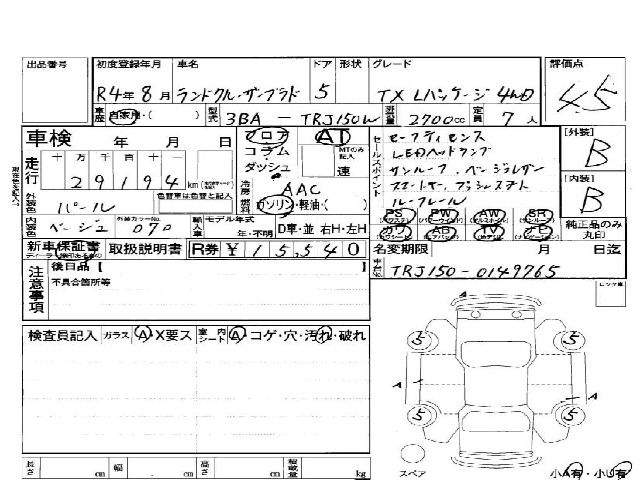 出品番号 初度登録年月 車名 ドア 形状 グレード 評価点
R4年8月 ランドクル・ザ・プラド 5 TX Lパッケージ 4WD 4.5
車歴 自家用・( ) 型式 3BA-TRJ150W 排気量 2700cc 定員 7人
車検 年 月 日 フロア AT
セールスポイント セーフティセンス [外装] B
コラム MTのみ記入 LEDヘッドランプ
走行 十万千百十 29194 km ダッシュ 速 サンルーフ、ベージュレザー
色替車は色替と記入 冷房 AAC スマートキー、プッシュスタート [内装] B
外装色 パール 燃料 ガソリン・軽油・( ) ルーフレール
内装色 ベージュ 外装カラーNo. 070 輸入車 モデル年式 年・不明 D車・並 右H・左H
PS PW AW SR
カワ AB TV ナビ 純正品のみ丸印
新車保証書 取扱説明書 R券 ¥15,540 名変期限 月 日迄
注意事項 後日品 [ ] 車台No. TRJ150-0149765
不具合箇所等
検査員記入 ガラス A・X要ス 室内シート A・コゲ・穴・汚れ・破れ
A
5 5
A A
5 5
長さ cm 幅 cm 高さ cm 積載量 kg スペア 小A有・小U有